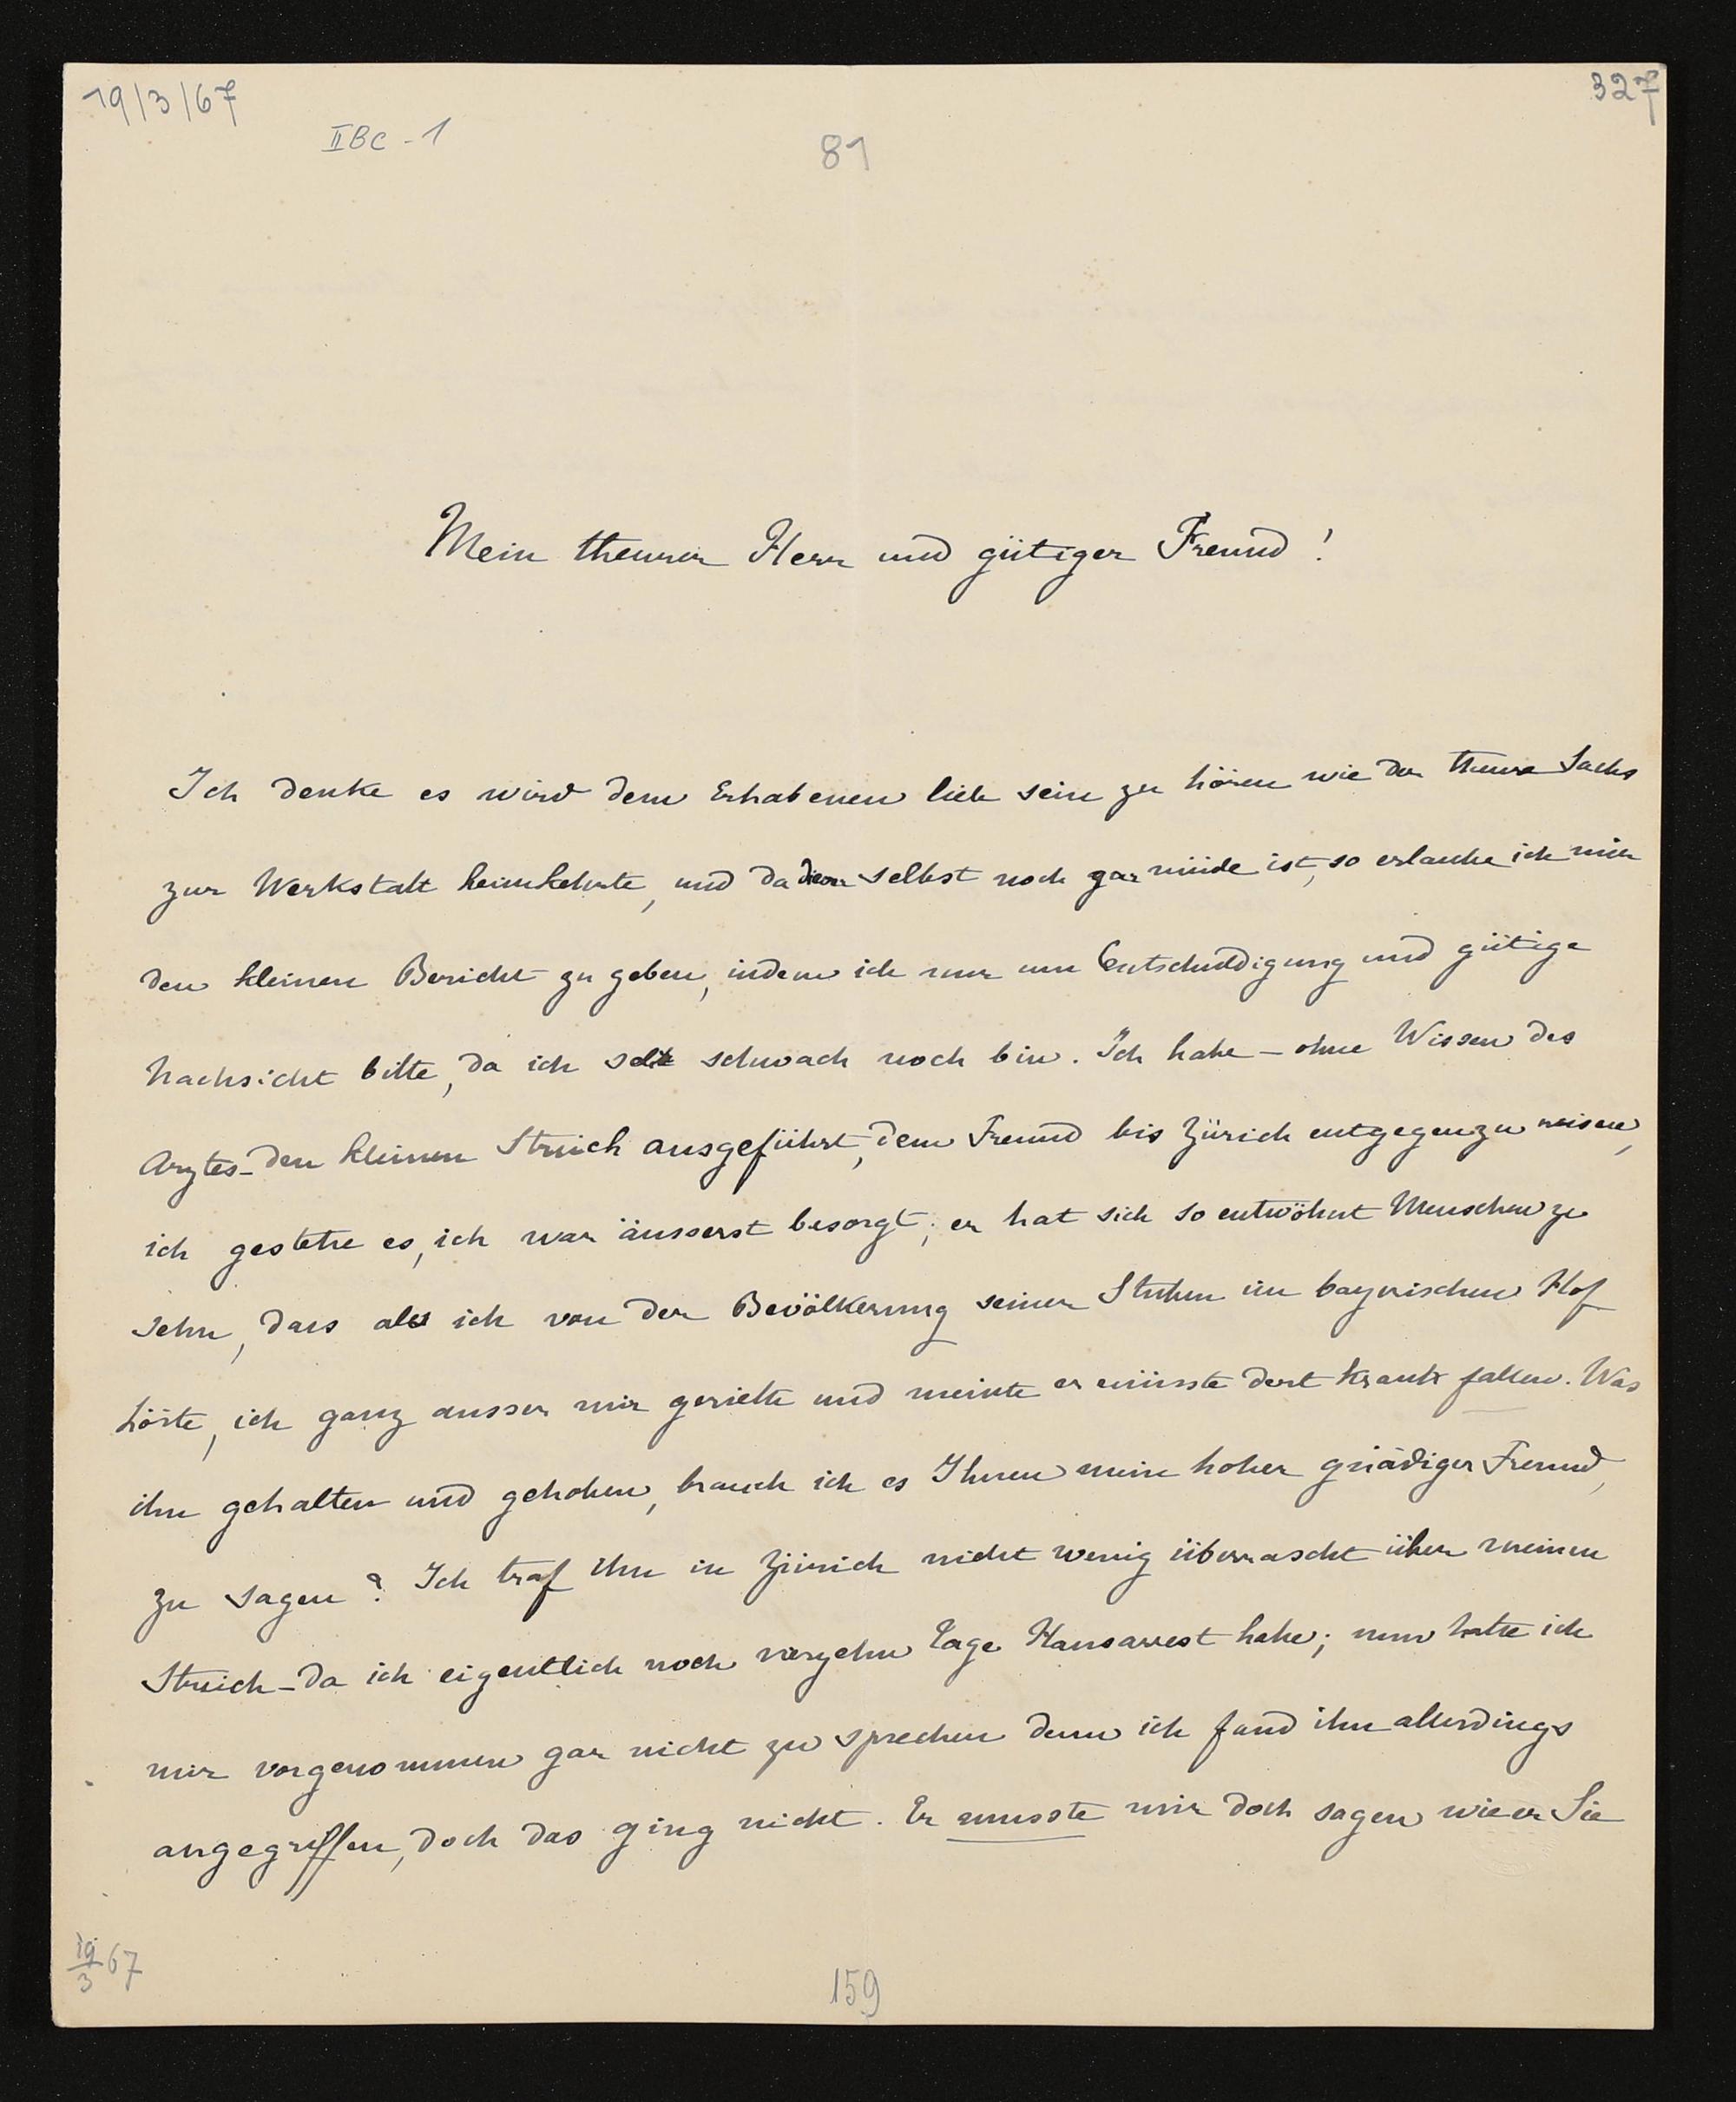 19/3/67
327
IIBC-1
81
Mein theurer Herr und gütiger Freund!
Ich denke es wird dem Erhabenen lieb sein zu hören wie der theure Sachs
zur Werkstatt heimkehrte, und da dieser selbst noch gar müde ist, so erlaube ich mir
den kleinen Bericht zu geben, indem ich nur um Entschuldigung und gütige
Nachsicht bitte, da ich selbst schwach noch bin. Ich habe – ohne Wissen des
Arztes – den kleinen Streich ausgeführt, dem Freund bis Zürich entgegenzu reisen,
ich gestehe es, ich war äusserst besorgt; er hat sich so entwöhnt Menschen zu
sehn, dass als ich von der Bevölkerung seiner Stuben im bayrischen Hof
hörte, ich ganz ausser mir gerieth und meinte er müsste dort krank fallen. Was
ihn gehalten und gehoben, brauch ich es Ihnen mein hoher gnädiger Freund,
zu sagen? Ich traf ihn in Zürich nicht wenig überrascht über meinen
Streich – da ich eigentlich noch vierzehn Tage Hausarrest habe; nun hatte ich
mir vorgenommen gar nicht zu sprechen denn ich fand ihn allerdings
angegriffen, doch das ging nicht. Er musste mir doch sagen wie er Sie
19/3 67
159